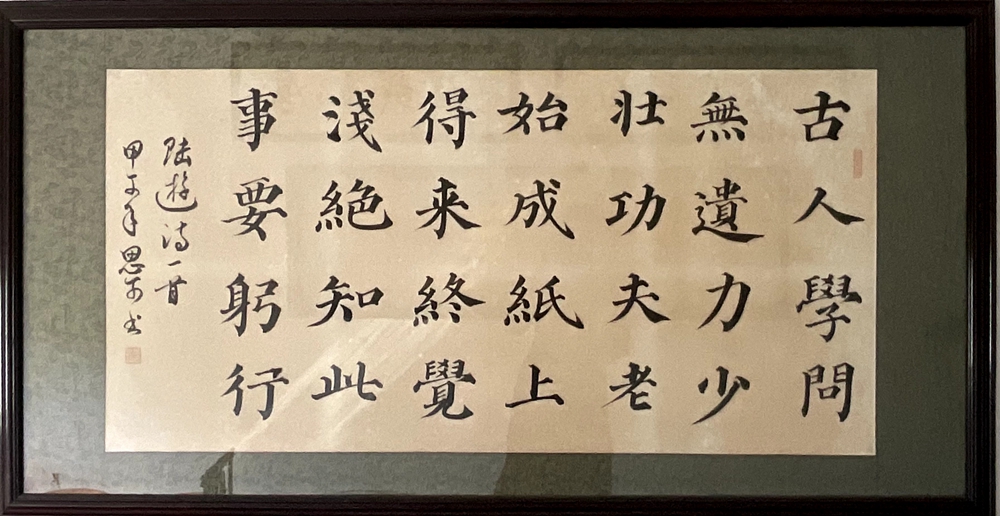 古人學問
無遺力少
壮功夫老
始成紙上
得来終覺
淺絶知此
事要躬行
陆游诗一首
甲午年思书